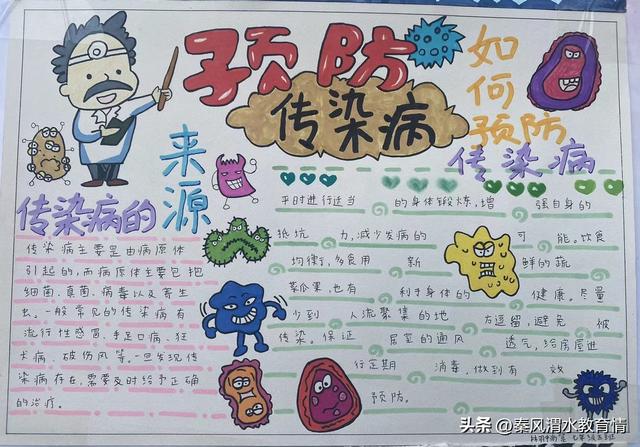 预防
传染病
如何
预防
传染病
来源
传染病的
传染病主要是由病原体
引起的,而病原体主要包把
细菌、真菌、病毒以及寄生
虫。一般常见的传染病有
流行性感冒、手足口病、狂
犬病、破伤风等。一旦发现传
染病存在,需要及时给予正确
的治疗。
平时进行适当的身体锻炼,增强自身的
抵抗力,减少发病的可能。饮食
均衡,多食用新鲜的蔬
菜瓜果,也有利于身体的健康。尽量
少到人流聚集的地方逗留,避免被
传染。保证居室的通风透气,给房屋进
行定期消毒,做到有效
预防。
头条 @秦风渭水教育情